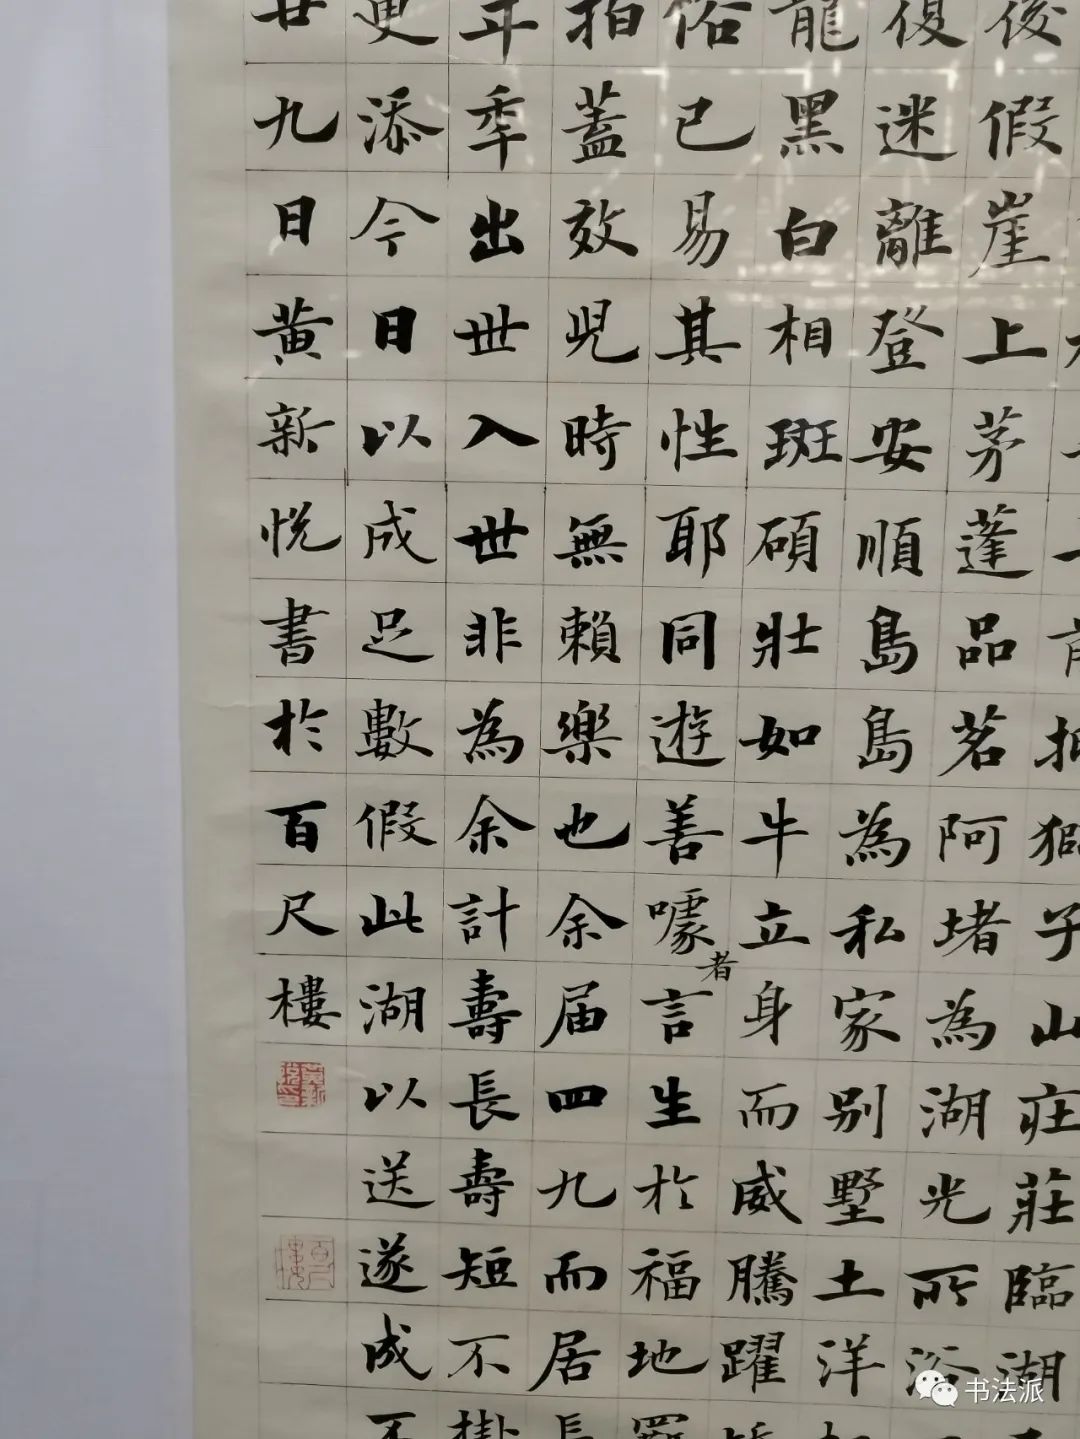 假崖上茅蓬品茗阿堵為湖光所浴
復迷離登安順島島為私家別墅土洋
龍黑白相斑碩壯如牛立身而威騰躍
俗已易其性耶同遊善噱者言生於福地
拍蓋效児時無賴樂也余届四九而居
年出世入世非為余計壽長壽短不
更添今日以成足數假此湖以送遂成不
廿九日黄新悦書於百尺樓
子山庄莊臨湖
书法派